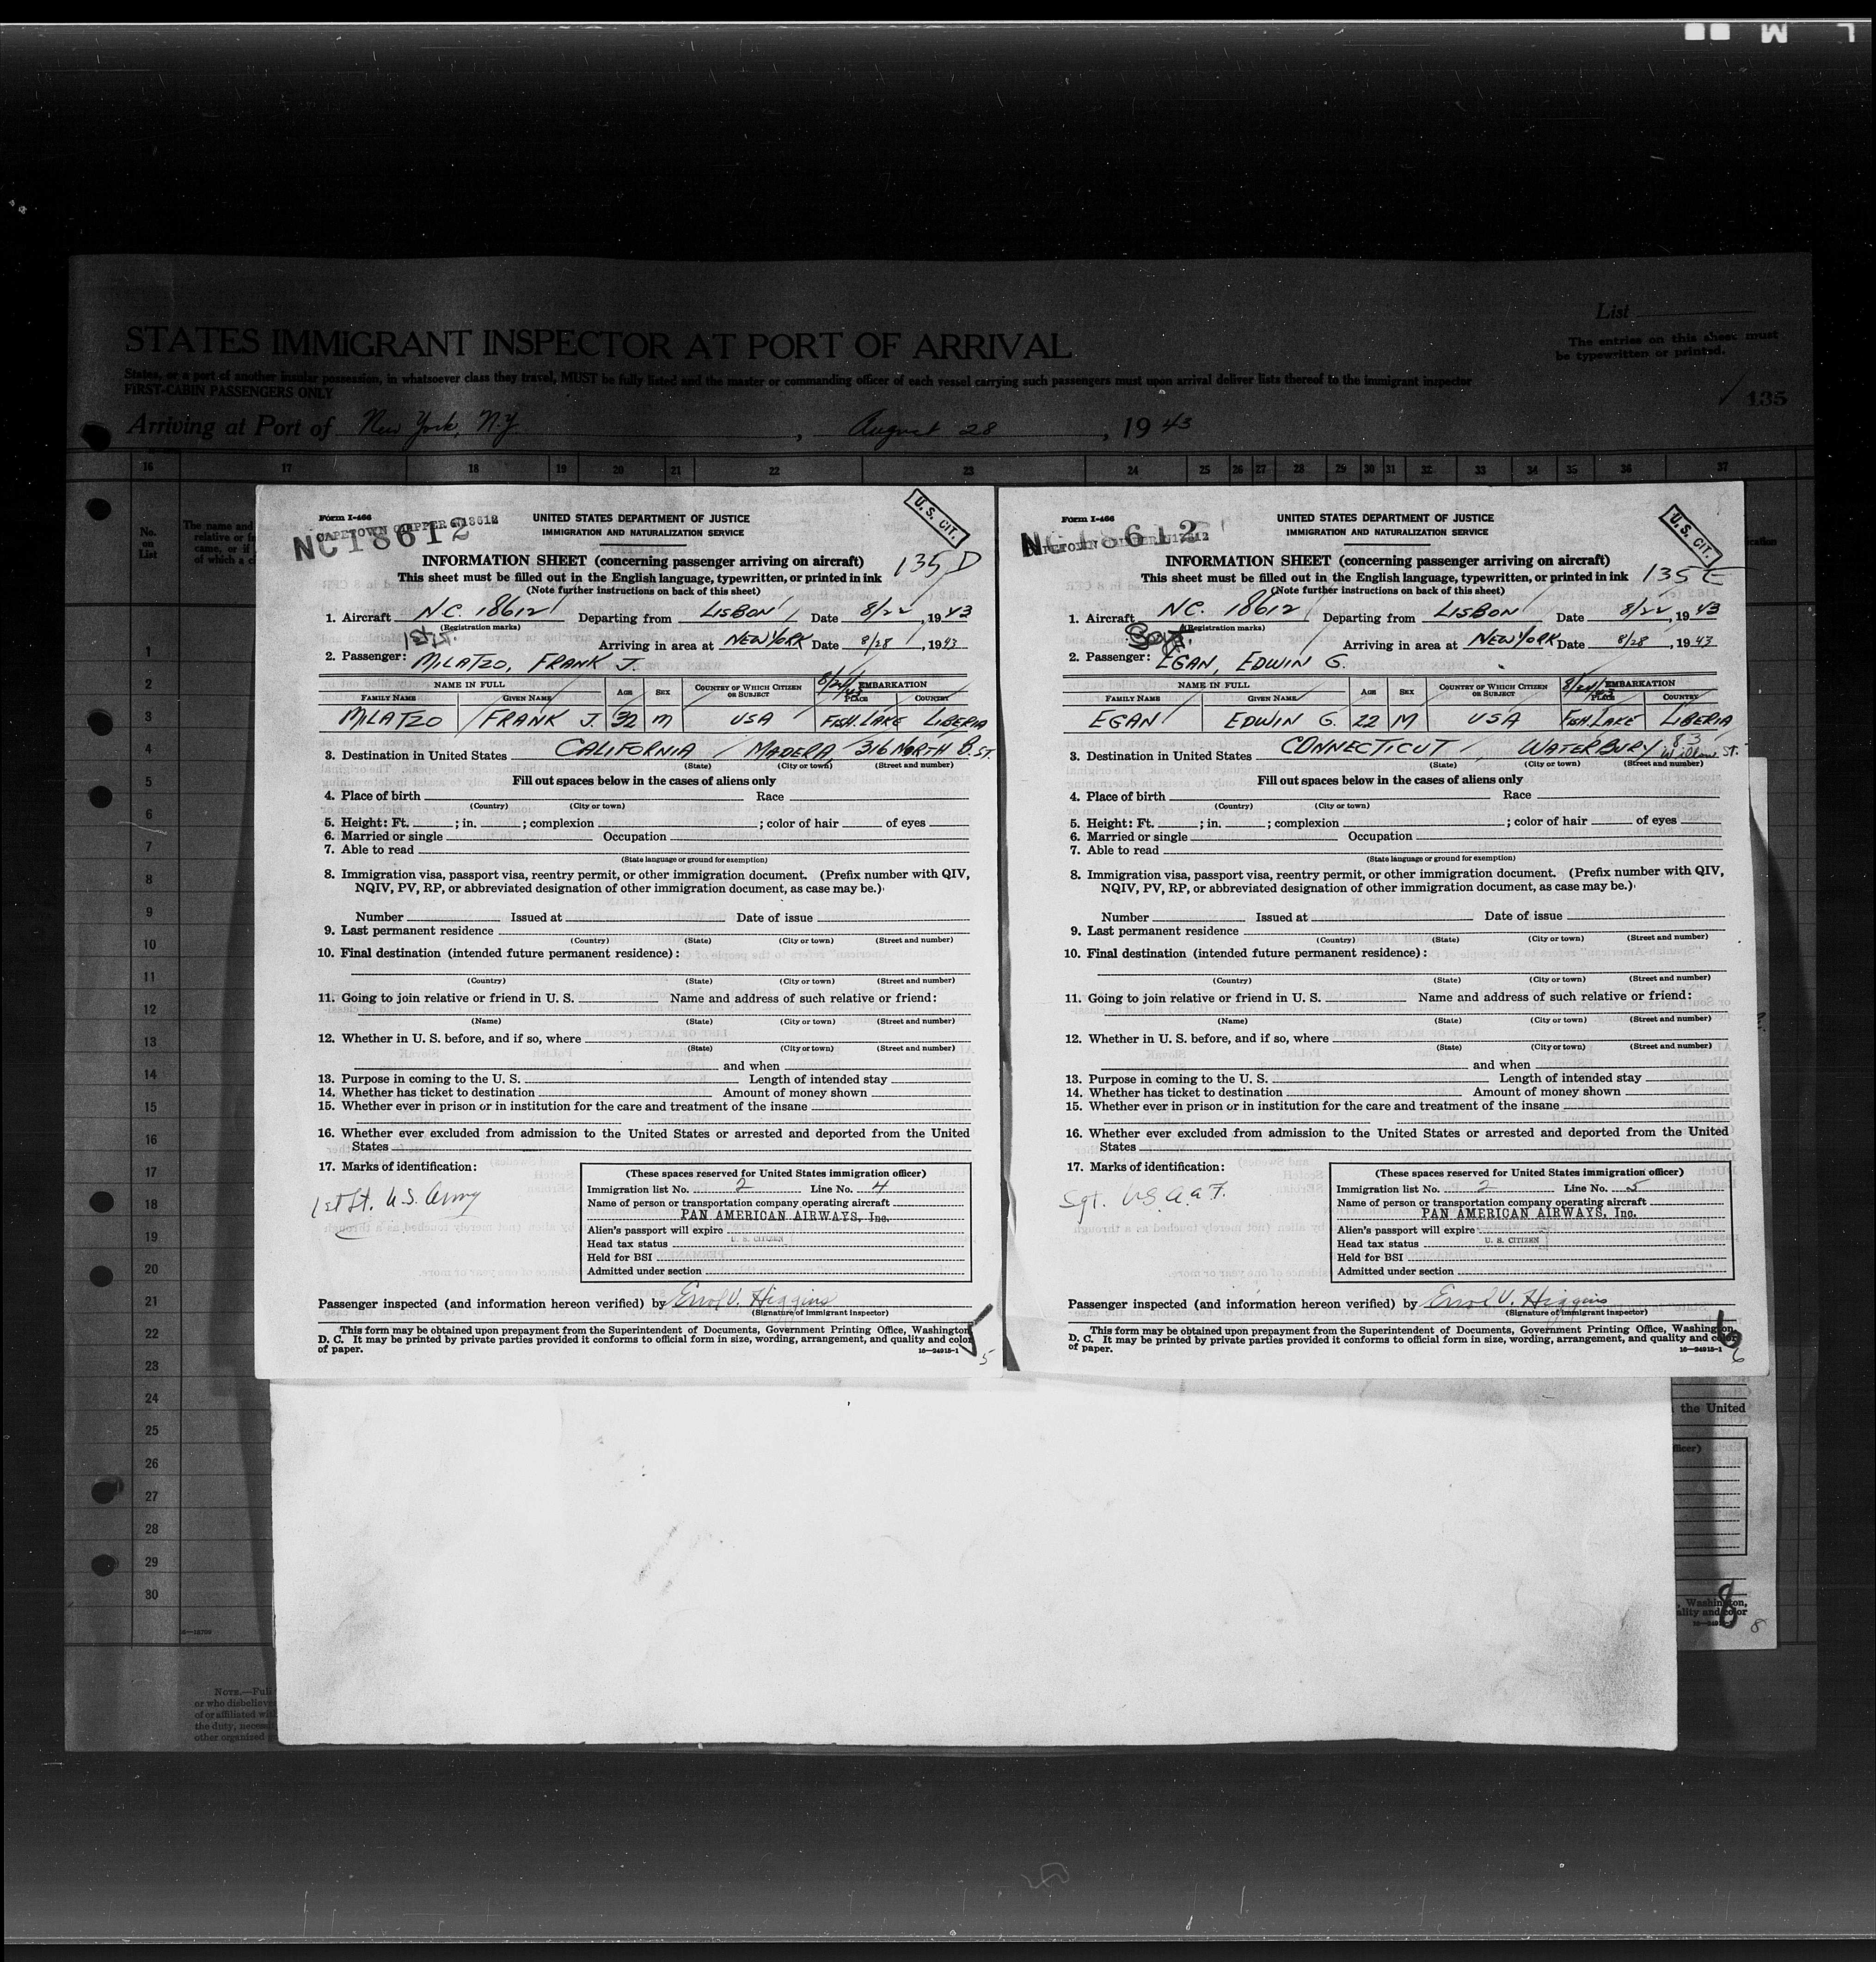 STATES IMMIGRANT INSPECTOR AT PORT OF ARRIVAL
List
The entries on this sheet must
be typewritten or printed.
States, or a port of another insular possession, in whatsoever class they travel, MUST be fully listed and the master or commanding officer of each vessel carrying such passengers must upon arrival deliver lists thereof to the immigrant inspector
FIRST-CABIN PASSENGERS ONLY
135
Arriving at Port of New York, N.Y. , August 28 , 19 43
16 17 18 19 20 21 22 23 24 25 26 27 28 29 30 31 32 33 34 35 36 37
No.
on
List
The name and
1
2
3
4
5
6
7
8
9
10
11
12
13
14
15
16
17
18
19
20
21
22
23
24
25
26
27
28
29
30
NOTE.—Full
or who disbeliev
of or affiliated wit
the duty, necess
other organized g
Form I-466
CAPETOWN CLIPPER N18612
NC18612
U.S. CIT.
UNITED STATES DEPARTMENT OF JUSTICE
IMMIGRATION AND NATURALIZATION SERVICE
INFORMATION SHEET (concerning passenger arriving on aircraft)
135 D
This sheet must be filled out in the English language, typewritten, or printed in ink
(Note further instructions on back of this sheet)
1. Aircraft N.C. 18612 Departing from LISBON Date 8/22, 1943
(Registration marks)
1st Lt.
Arriving in area at NEW YORK Date 8/28, 1943
2. Passenger: MILATZO, FRANK J.
NAME IN FULL AGE SEX COUNTRY OF WHICH CITIZEN OR SUBJECT 8/24/43 EMBARKATION
FAMILY NAME GIVEN NAME PLACE COUNTRY
MILATZO FRANK J. 32 M USA FISH LAKE LIBERIA
3. Destination in United States CALIFORNIA MADERA, 316 NORTH B. ST.
(State) (City or town) (Street and number)
Fill out spaces below in the cases of aliens only
4. Place of birth Race
(Country) (City or town)
5. Height: Ft. ; in. ; complexion ; color of hair of eyes
6. Married or single Occupation
7. Able to read
(State language or ground for exemption)
8. Immigration visa, passport visa, reentry permit, or other immigration document. (Prefix number with QIV,
NQIV, PV, RP, or abbreviated designation of other immigration document, as case may be.)
Number Issued at Date of issue
9. Last permanent residence
(Country) (State) (City or town) (Street and number)
10. Final destination (intended future permanent residence):
(Country) (State) (City or town) (Street and number)
11. Going to join relative or friend in U. S. Name and address of such relative or friend:
(Name) (State) (City or town) (Street and number)
12. Whether in U. S. before, and if so, where
(State) (City or town) (Street and number)
and when
13. Purpose in coming to the U. S. Length of intended stay
14. Whether has ticket to destination Amount of money shown
15. Whether ever in prison or in institution for the care and treatment of the insane
16. Whether ever excluded from admission to the United States or arrested and deported from the United
States
17. Marks of identification:
1st Lt. U.S. Army
(These spaces reserved for United States immigration officer)
Immigration list No. 2 Line No. 4
Name of person or transportation company operating aircraft
PAN AMERICAN AIRWAYS, Inc.
Alien's passport will expire
Head tax status U. S. CITIZEN
Held for BSI
Admitted under section
Passenger inspected (and information hereon verified) by Errol V. Higgins
(Signature of immigrant inspector)
This form may be obtained upon prepayment from the Superintendent of Documents, Government Printing Office, Washington
D. C. It may be printed by private parties provided it conforms to official form in size, wording, arrangement, and quality and color
of paper.
16—24915-1
5
5
Form I-466
NC18612
U.S. CIT.
UNITED STATES DEPARTMENT OF JUSTICE
IMMIGRATION AND NATURALIZATION SERVICE
INFORMATION SHEET (concerning passenger arriving on aircraft)
135 E
This sheet must be filled out in the English language, typewritten, or printed in ink
(Note further instructions on back of this sheet)
1. Aircraft NC. 18612 Departing from LISBON Date 8/22, 1943
(Registration marks)
Sgt.
Arriving in area at NEW YORK Date 8/28, 1943
2. Passenger: EGAN, EDWIN G.
NAME IN FULL AGE SEX COUNTRY OF WHICH CITIZEN OR SUBJECT 8/24/43 EMBARKATION
FAMILY NAME GIVEN NAME PLACE COUNTRY
EGAN EDWIN G. 22 M USA FISH LAKE LIBERIA
3. Destination in United States CONNECTICUT, WATERBURY 83 Willow ST.
(State) (City or town) (Street and number)
Fill out spaces below in the cases of aliens only
4. Place of birth Race
(Country) (City or town)
5. Height: Ft. ; in. ; complexion ; color of hair of eyes
6. Married or single Occupation
7. Able to read
(State language or ground for exemption)
8. Immigration visa, passport visa, reentry permit, or other immigration document. (Prefix number with QIV,
NQIV, PV, RP, or abbreviated designation of other immigration document, as case may be.)
Number Issued at Date of issue
9. Last permanent residence
(Country) (State) (City or town) (Street and number)
10. Final destination (intended future permanent residence):
(Country) (State) (City or town) (Street and number)
11. Going to join relative or friend in U. S. Name and address of such relative or friend:
(Name) (State) (City or town) (Street and number)
12. Whether in U. S. before, and if so, where
(State) (City or town) (Street and number)
and when
13. Purpose in coming to the U. S. Length of intended stay
14. Whether has ticket to destination Amount of money shown
15. Whether ever in prison or in institution for the care and treatment of the insane
16. Whether ever excluded from admission to the United States or arrested and deported from the United
States
17. Marks of identification:
Sgt. U.S. A.A.F.
(These spaces reserved for United States immigration officer)
Immigration list No. 2 Line No. 5
Name of person or transportation company operating aircraft
PAN AMERICAN AIRWAYS, Inc.
Alien's passport will expire
Head tax status U. S. CITIZEN
Held for BSI
Admitted under section
Passenger inspected (and information hereon verified) by Errol V. Higgins
(Signature of immigrant inspector)
This form may be obtained upon prepayment from the Superintendent of Documents, Government Printing Office, Washington,
D. C. It may be printed by private parties provided it conforms to official form in size, wording, arrangement, and quality and color
of paper.
16—24915-1
6
6
the United
officer)
, Washington,
ality and color
8
8